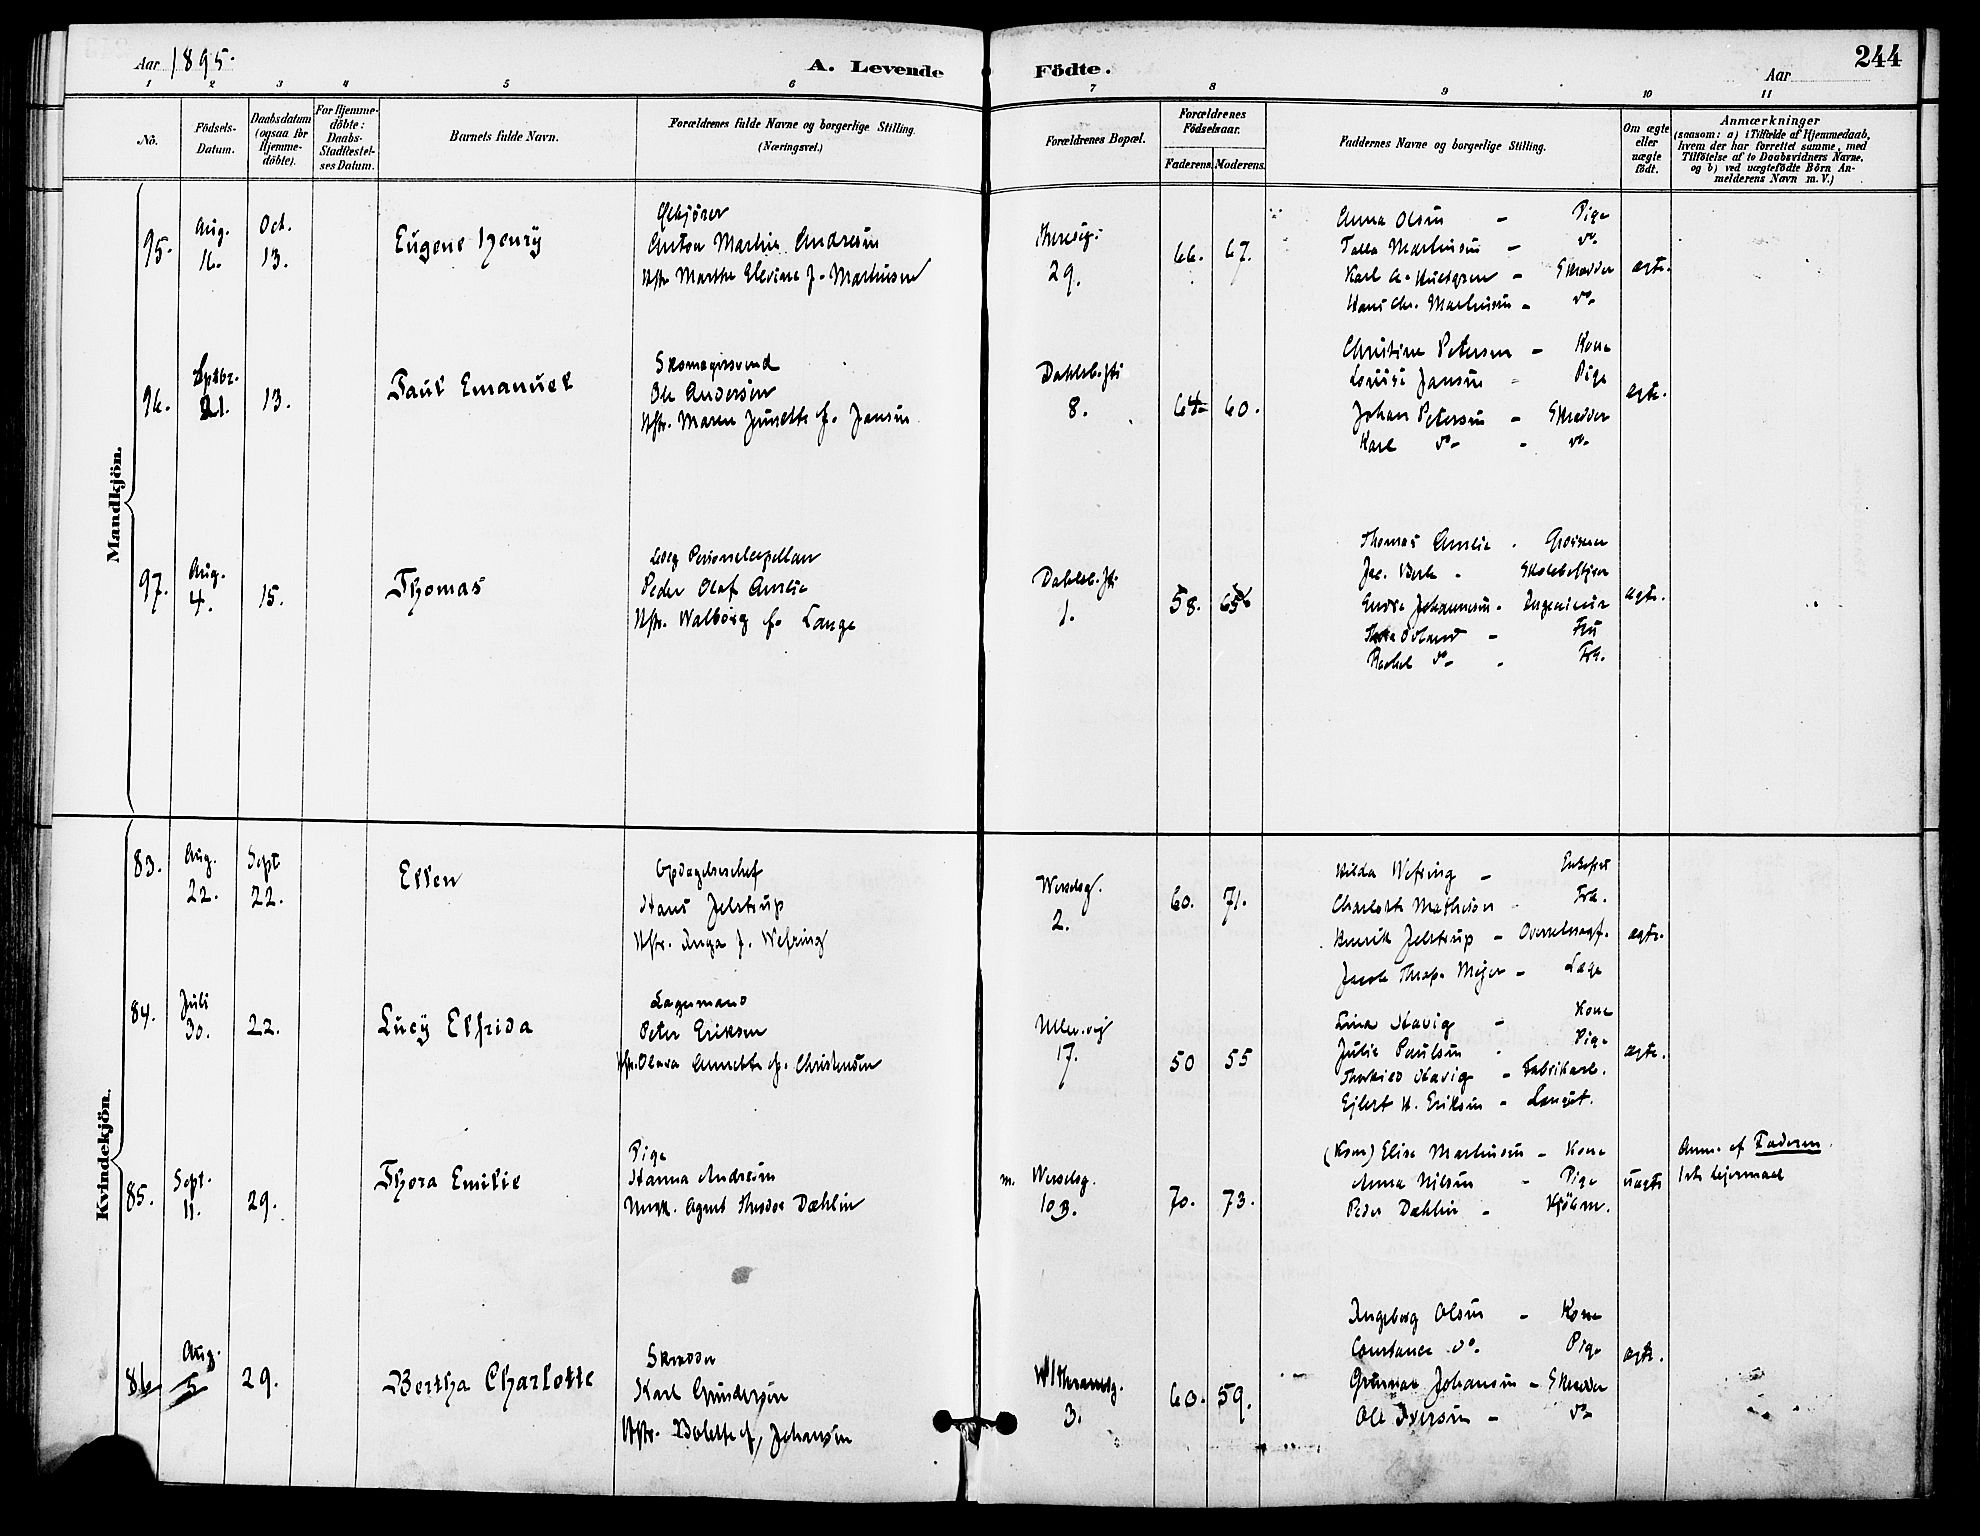 244
Aar 1895.
A. Levende Födte.
Aar
1 2 3 4 5 6 7 8 9 10 11
No.
Födsels-Datum.
Daabsdatum (ogsaa for Hjemme-döbte).
For Hjemme-döbte: Daabs-Stadfæstel-ses Datum.
Barnets fulde Navn.
Forældrenes fulde Navne og borgerlige Stilling.
(Næringsvei.)
Forældrenes Bopæl.
Forældrenes Födselsaar.
Faderens. Moderens.
Faddernes Navne og borgerlige Stilling.
Om ægte eller uægte födt.
Anmærkninger
(saasom: a) i Tilfælde af Hjemmedaab, hvem der har forrettet samme, med Tilföielse af to Daabsvidners Navne, og b) ved uægtefödte Börn An-melderens Navn m. V.)
Mandkjön.
95.
Aug. 16.
Oct. 13.
Eugene Henry
Anton Martin Andresen
Hstr. Marthe Elevine f. Martinsen
29.
66. 67.
Anna Olsen - Pige
Talla Martinsen - do
Karl A. - Skrædder
Hans Chr. Martinsen - do
ægte.
96.
Septbr. 21.
13.
Paul Emanuel
Skomagersvend
Ole Andersen
Hstr. Maren Junette f. Jansen
Dahlsb.sti
8.
60.
Christine Petersen - Kone
Lovise Jansen - Pige
Johan Petersen - Skrædder
Karl do - do
ægte.
97.
Aug. 4.
15.
Thomas
Personelcapellan
Peder Olaf
Hstr. Walborg f. Lange
Dahlsb.sti
1.
58.
Thomas - Grosserer
- Skolebestyrer
Johannesen - Ingeniør
- Fru
Rachel do - Frk.
ægte.
Kvindekjön.
83.
Aug. 22.
Sept 22.
Ellen
Opdagelseschef
Hans Jelstrup
Hstr. Inga f. Wefring
Wesselsg.
2.
60. 71.
Hilda Wefring - Enkefru
Charlotte Mathisen - Frk.
Henrik Jelstrup - Overretssagf.
Jacob Thrap Mejer - Læge
ægte.
84.
Juli 30.
22.
Lucy Elfrida
Lagermand
Peter Eriksen
Hstr. Olava Annette f. Christensen
Ullev.vej
17.
50 55
Lina Stavig - Kone
Julie Paulsen - Pige
Thorkild Stavig - Fabrikarb.
Ejlert H. Eriksen -
ægte.
85.
Sept. 11.
29.
Thora Emilie
Pige
Hanna Andresen
Agent Theodor Dæhlin
m. Wesselsg.
10B.
70. 73.
(Kom) Elise Martinsen - Kone
Anna Nilsen - Pige
Peder Dæhlin - Kjøbm.
uægte
Anm. af Faderen.
1ste Lejermaal
86
Aug. 5
29.
Bertha Charlotte
Skrædder
Karl Gundersen
Hstr. Bolette f. Johansen
Wilh
3.
60. 59.
Ingeborg Olsen - Kone
Constance do. Pige
Gunnar Johansen - Skrædder
Ole Iversen - do
ægte.